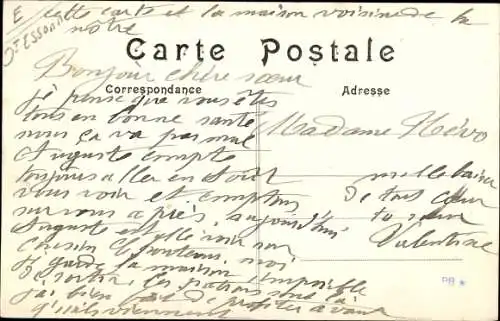 cette carte et la maison voisine de la
nôtre
Carte Postale
Bonjour chère sœur
Correspondance
Adresse
je pense que vous êtes
tous en bonne santé
nous ça va pas mal
Auguste compte
toujours aller en Août
vous voir et comptons
sur vous après, aujourd'hui
Auguste est allé voir son
cousin
je garde la maison impossible
de sortir,
j'ai bien de profiter avant
qu'ils viennent
Madame
mille baisers
de tout cœur
ta sœur
Valentine
PB